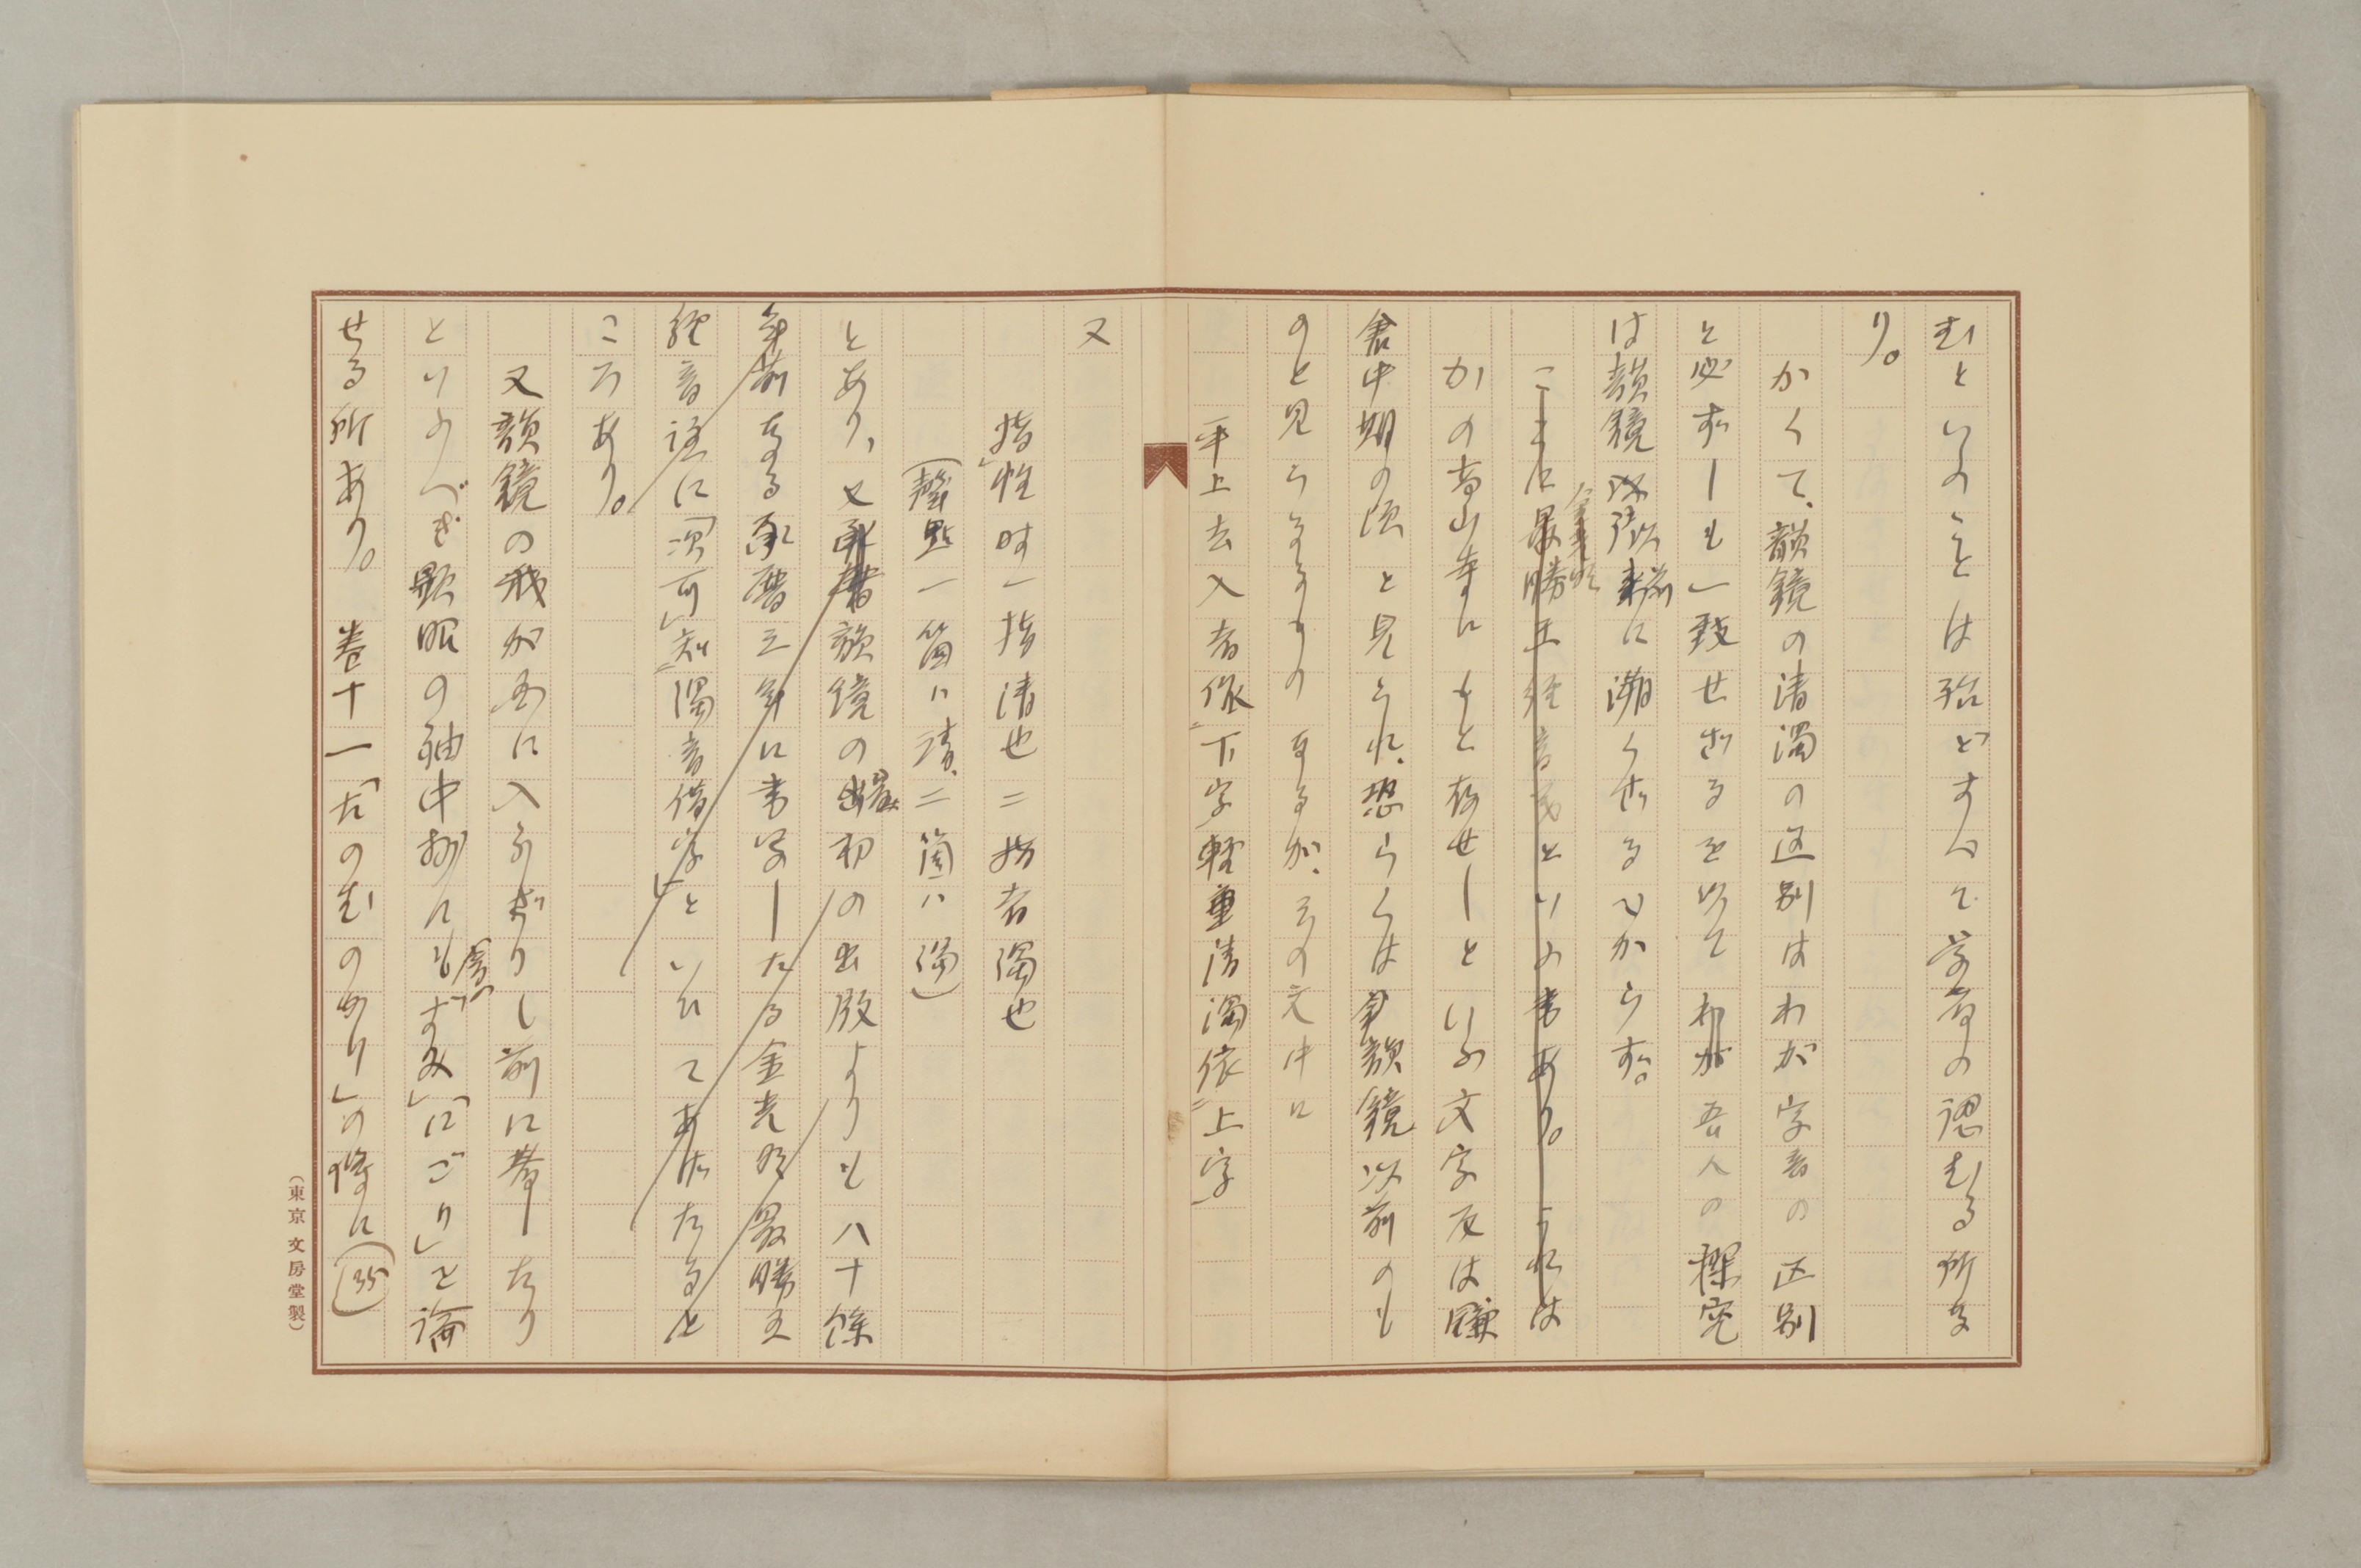 むといふことは殆どすべて学者の認むる所な
り。
かくて、韻鏡の清濁の区別はわが字音の区別
と必ずしも一致せざるを以てわが吾人の探究
は韻鏡以前に溯らざるべからず。
ここに最勝王経音義といふ書あり。これは
かの高山寺にもと存せしといふ文字反は鎌
倉中期の頃と見られ、恐らくは韻鏡以前のも
のと見らるるものなるが、その文中に
平上去入者依下字軽重清濁依上字
又
指性時一指清也二指者濁也
(聲點一箇ハ清、二箇ハ濁)
とあり、又韻鏡の最初の出版よりも八十餘
年前なる承暦三年に書写したる金光明最勝王
経音義に「次可知濁音借字」といひてあげたると
ころあり。
又韻鏡の我が国に入らざりし前に著したり
といふべき顕昭の袖中抄にも屡「すみ」「にごり」を論
せる所あり。 巻十一「たのむのかり」の條に(35)
(東京文房堂製)